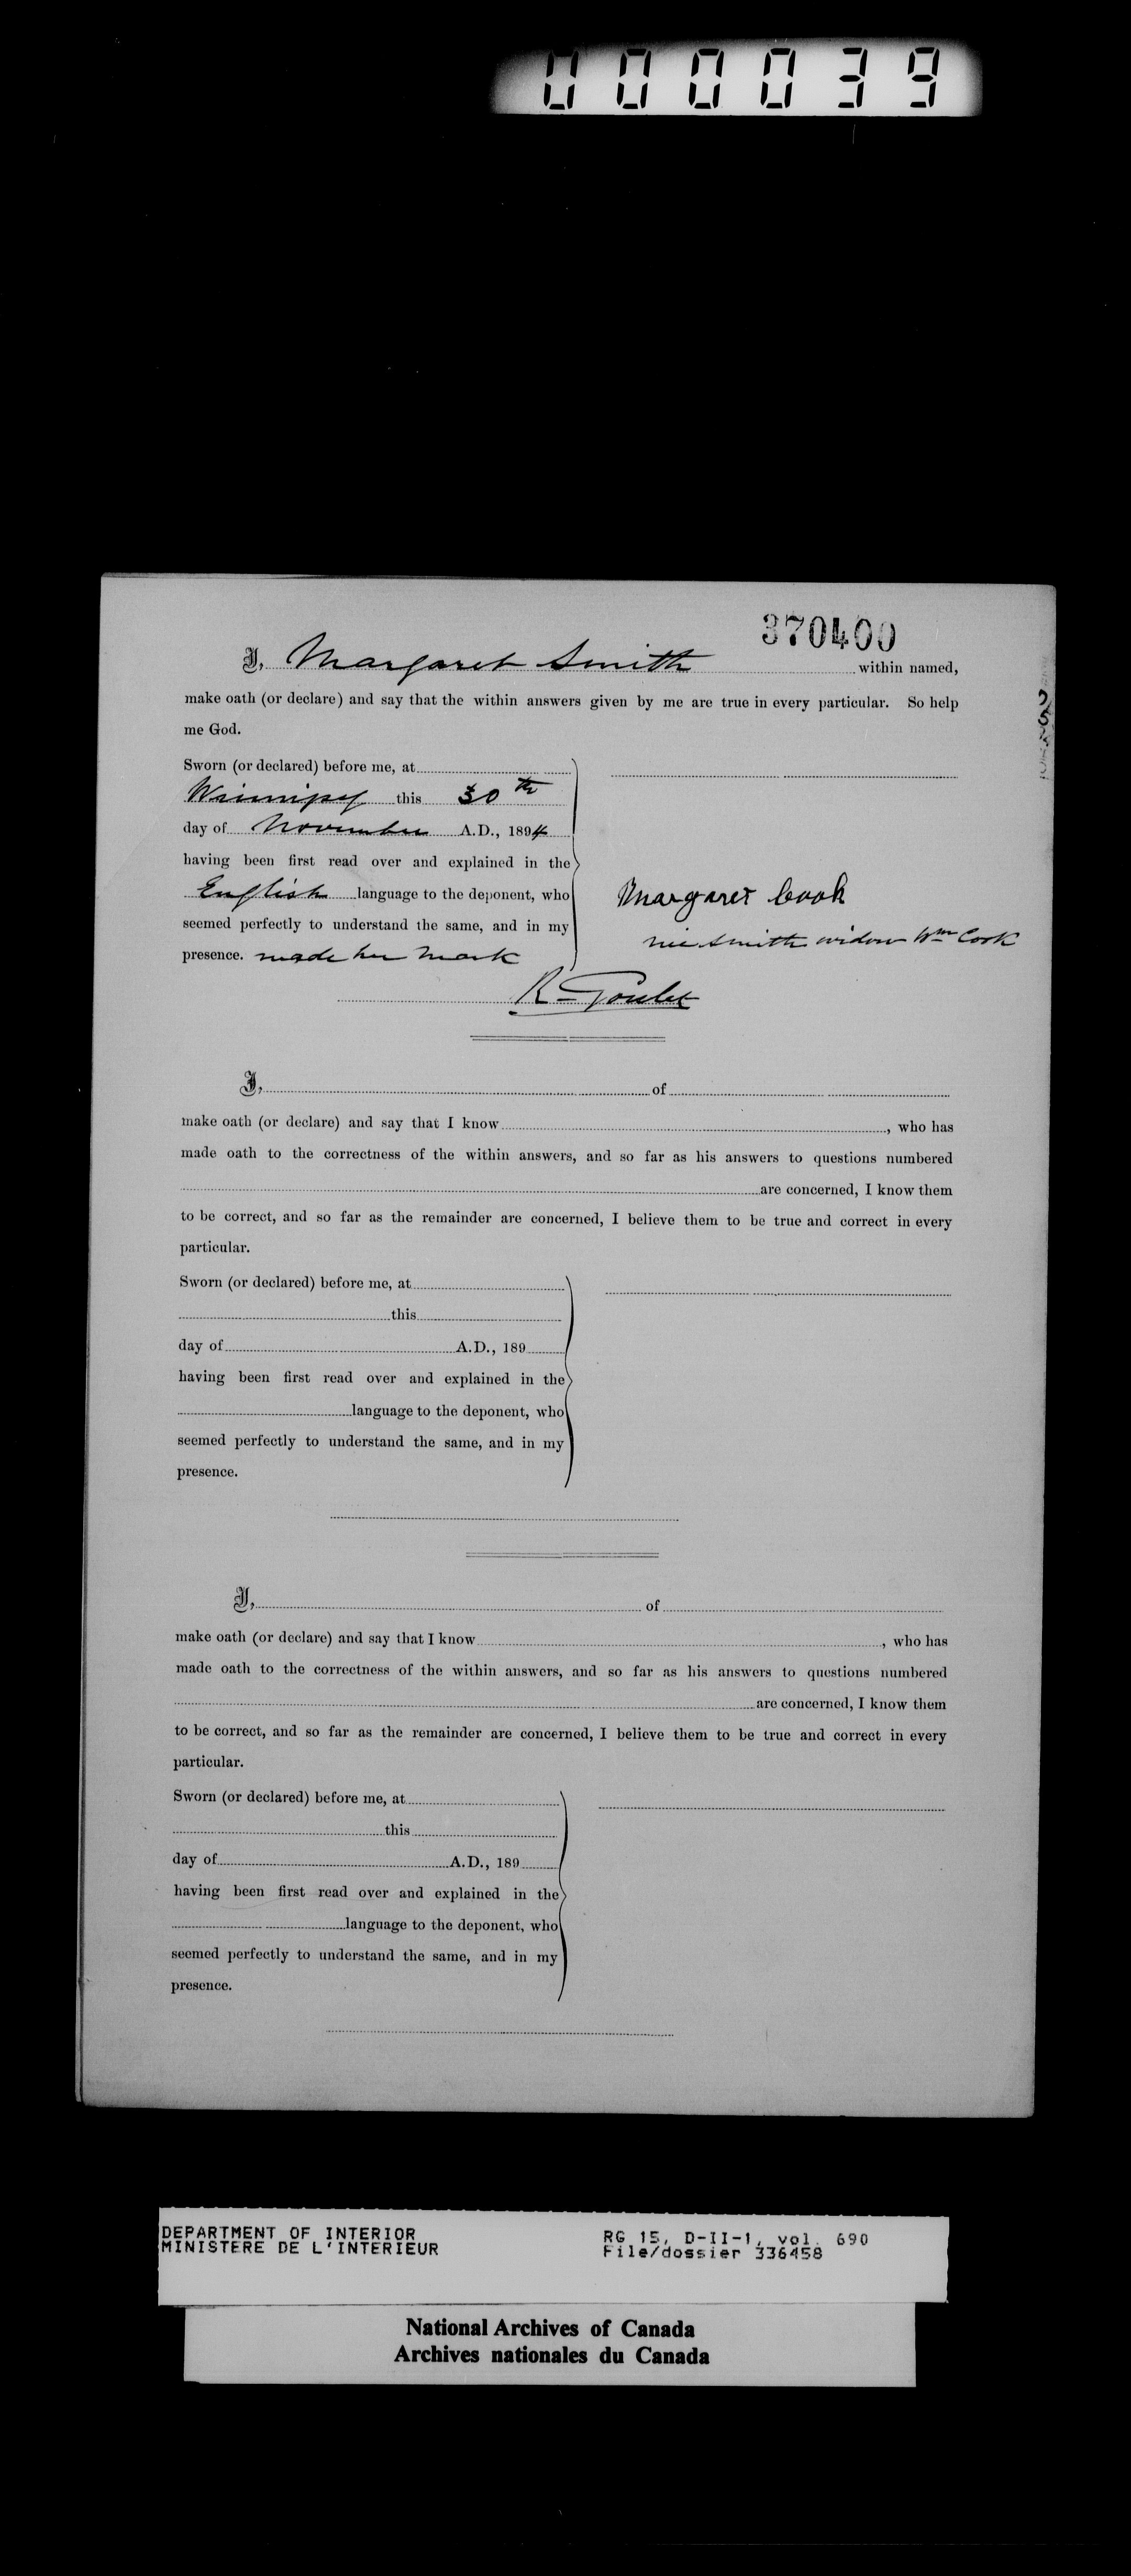 000039
370400
I, Margaret Smith within named,
make oath (or declare) and say that the within answers given by me are true in every particular. So help
me God.
Sworn (or declared) before me, at
Winnipeg this 30th
day of November A.D., 1894
having been first read over and explained in the
English language to the deponent, who
seemed perfectly to understand the same, and in my
presence. made her mark
Margaret Cook
nie Smith widow Wm Cook
R Goulet
I, of
make oath (or declare) and say that I know , who has
made oath to the correctness of the within answers, and so far as his answers to questions numbered
are concerned, I know them
to be correct, and so far as the remainder are concerned, I believe them to be true and correct in every
particular.
Sworn (or declared) before me, at
this
day of A.D., 189
having been first read over and explained in the
language to the deponent, who
seemed perfectly to understand the same, and in my
presence.
I, of
make oath (or declare) and say that I know , who has
made oath to the correctness of the within answers, and so far as his answers to questions numbered
are concerned, I know them
to be correct, and so far as the remainder are concerned, I believe them to be true and correct in every
particular.
Sworn (or declared) before me, at
this
day of A.D., 189
having been first read over and explained in the
language to the deponent, who
seemed perfectly to understand the same, and in my
presence.
DEPARTMENT OF INTERIOR
MINISTERE DE L'INTERIEUR
RG 15, D-II-1, vol. 690
File/dossier 336458
National Archives of Canada
Archives nationales du Canada